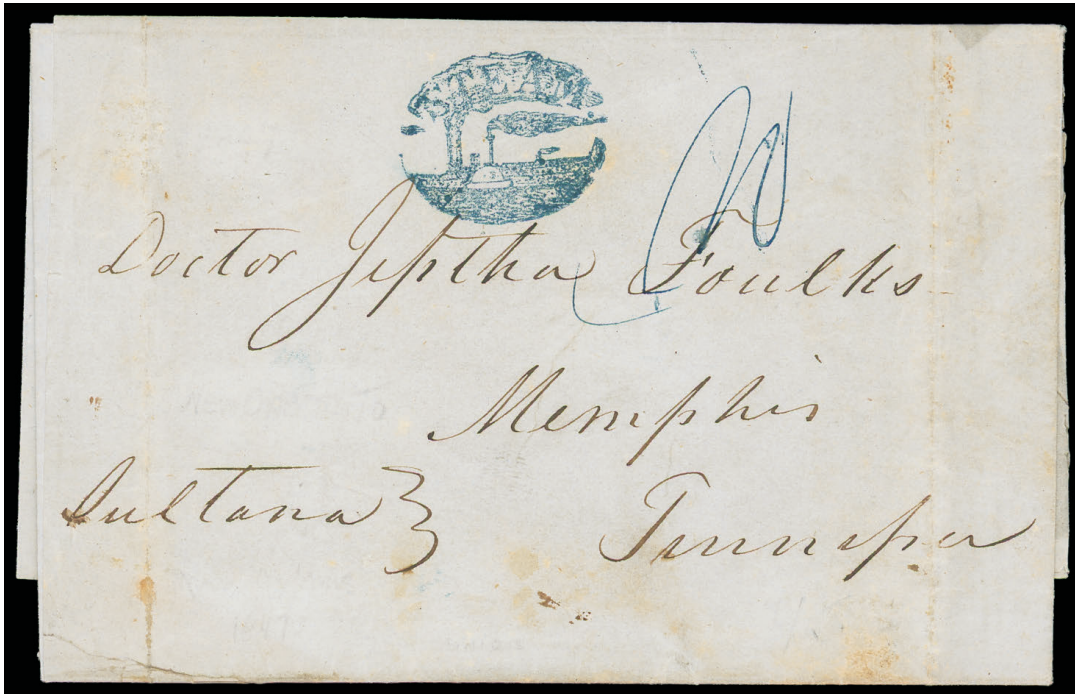 STEAM
10
Doctor Jeptha Foulks
Memphis
Sultana
Tennessee